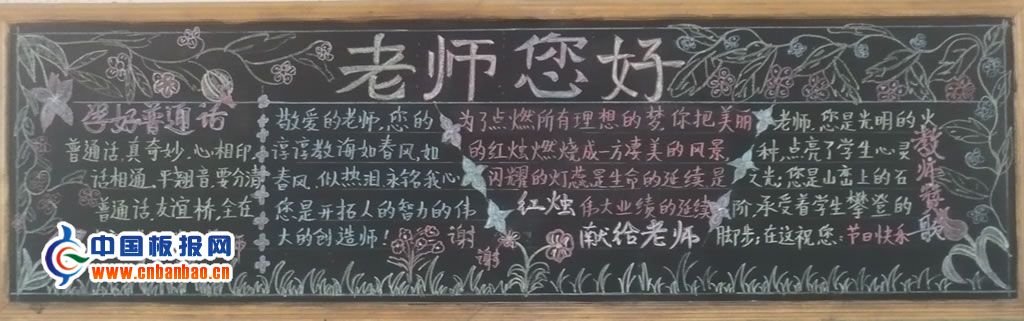 老师您好
学好普通话
普通话,真奇妙,心相印,
话相通,平翘音,要分清
普通话,友谊桥,全在
师
敬爱的老师,您的
谆谆教诲如春风,如
春风,似热泪永铭我心
您是开拓人的智力的伟
大的创造师!
谢
谢
为了点燃所有理想的梦,你把美丽
的红烛燃烧成一方凄美的风景,
闪耀的灯蕊是生命的延续是
伟大业绩的延续
红烛
献给老师
老师,您是光明的火
种,点亮了学生心灵
之光;您是山峦上的石
阶,承受着学生攀登的
脚步;在这祝您:节日快乐
教师赞歌
中国板报网
www.cnbanbao.cn